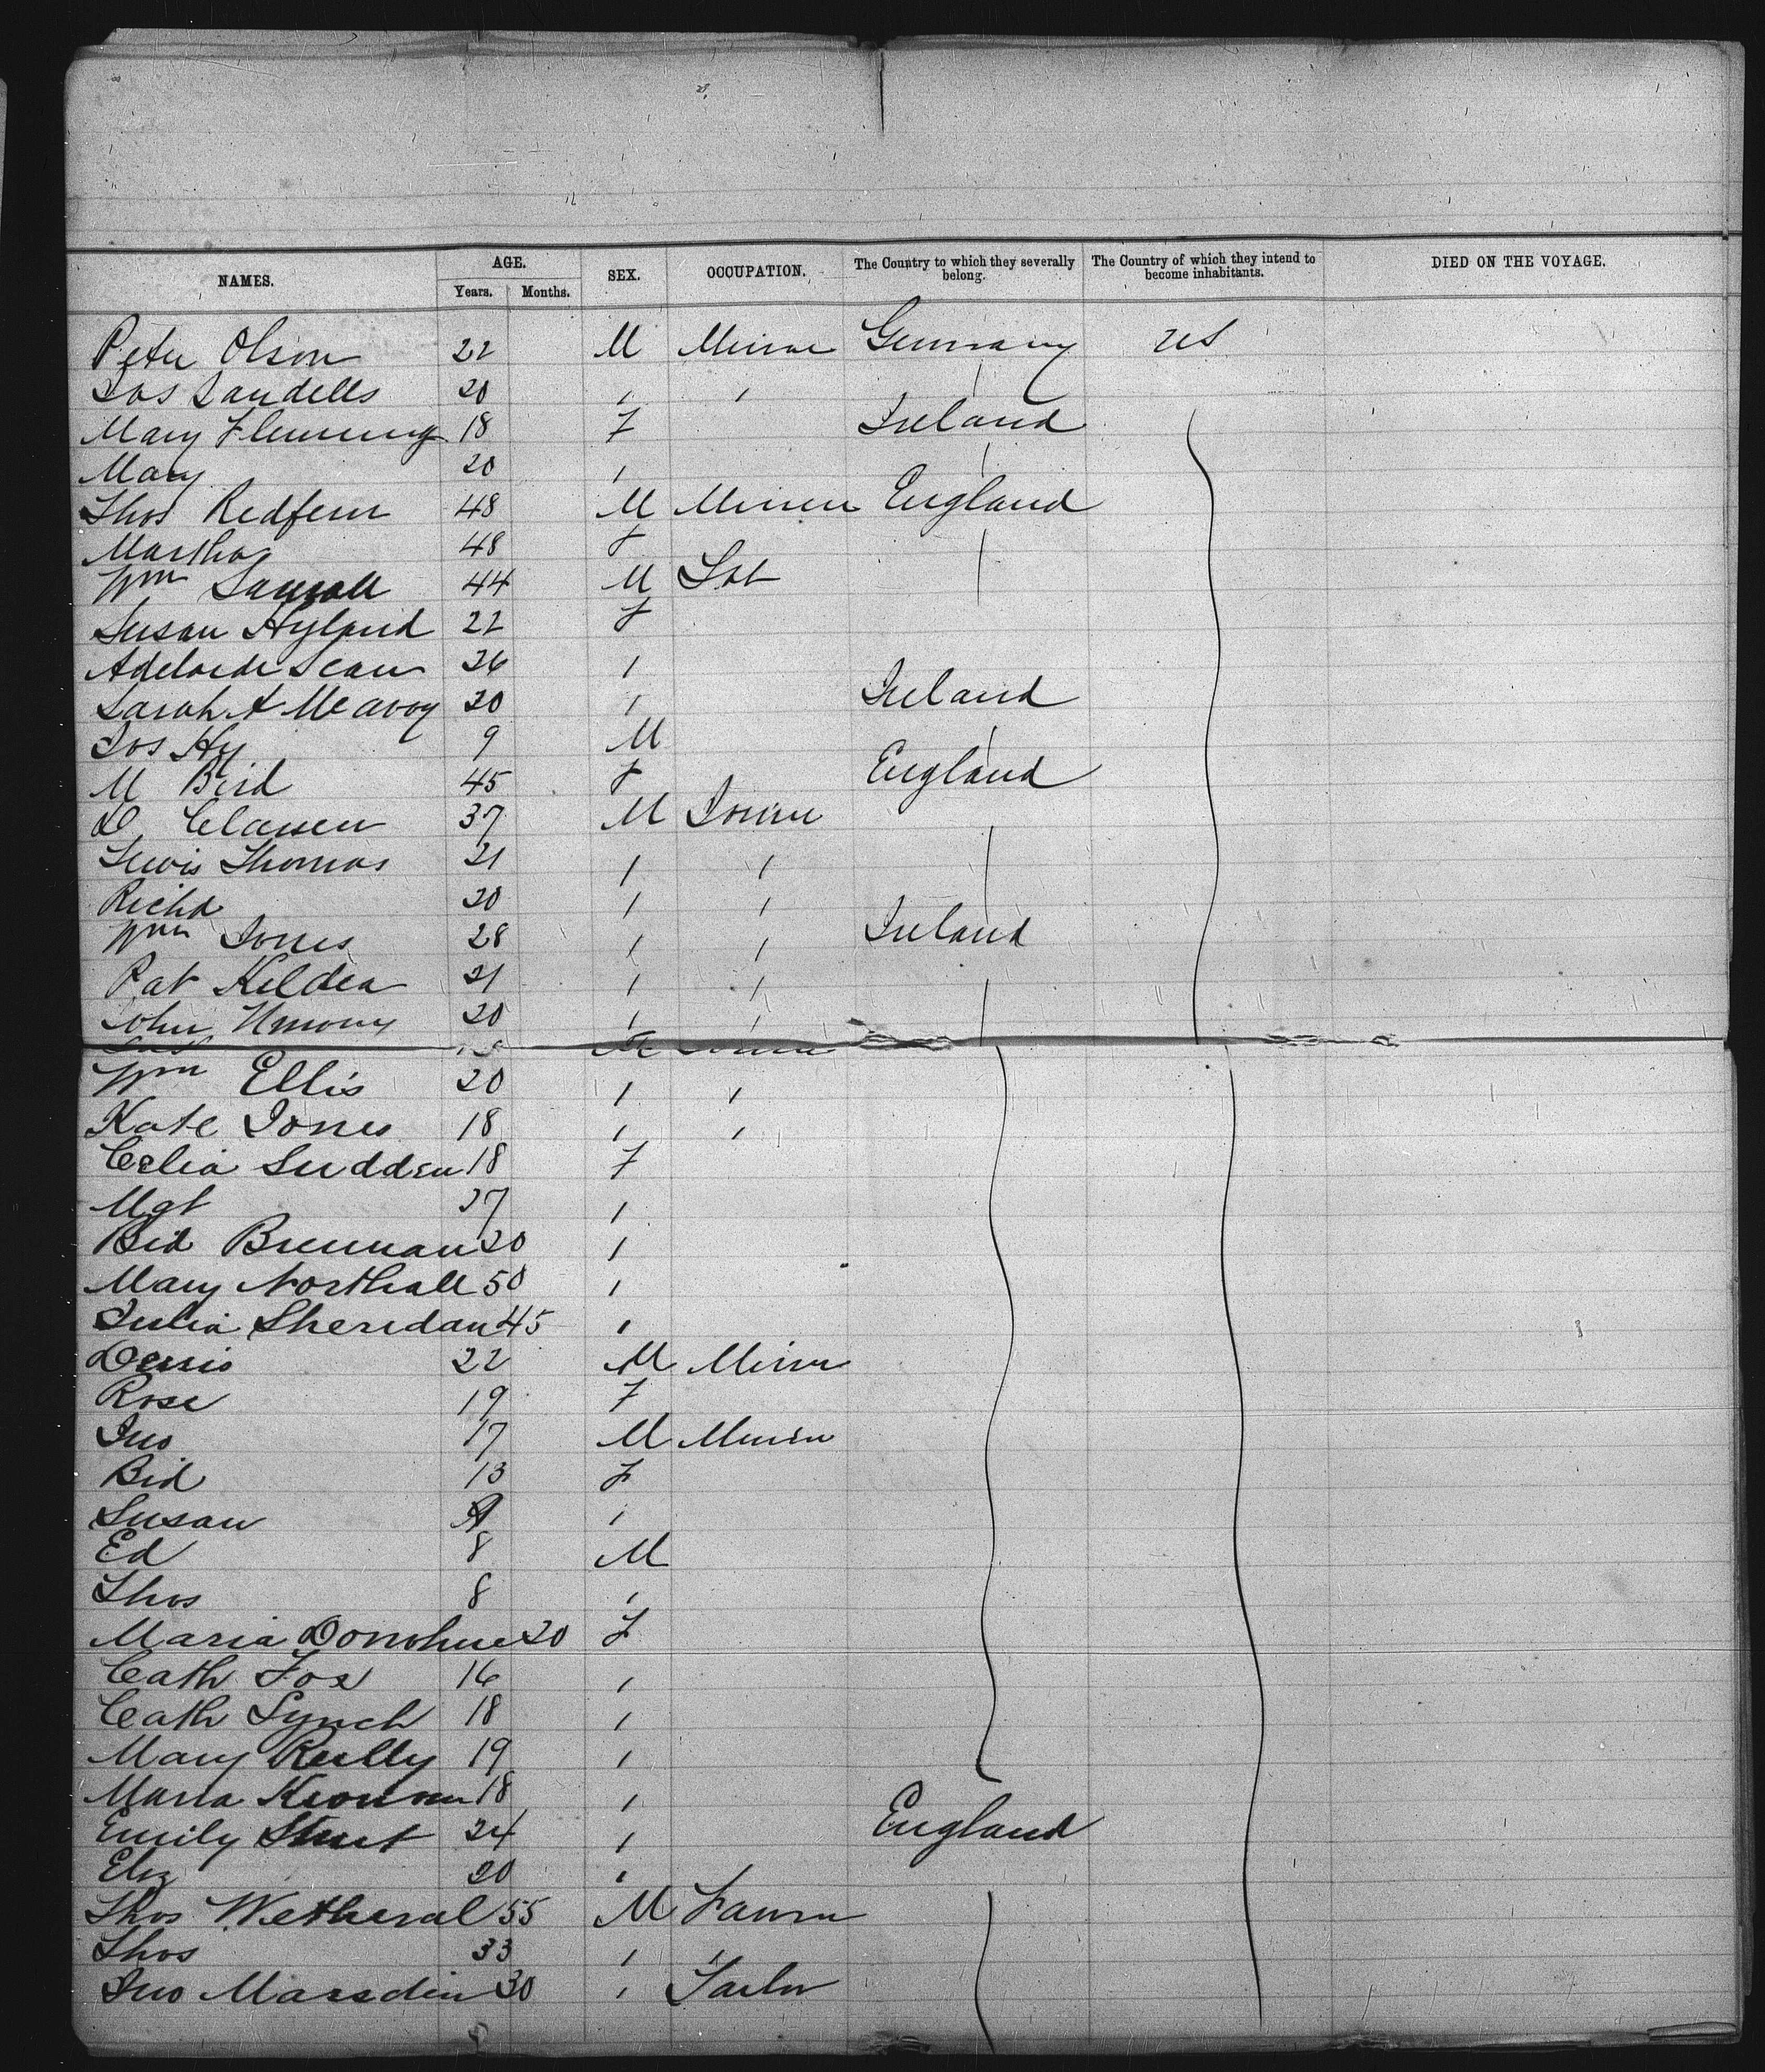 NAMES. AGE. Years. Months. SEX. OCCUPATION. The Country to which they severally belong. The Country of which they intend to become inhabitants. DIED ON THE VOYAGE.
Peter Olson 22 M Miner Germany US
Jos Sandells 20 " "
Mary Flemming 18 F Ireland
Mary 20 "
Thos Redfern 48 M Miner England
Martha 48 F
Wm 44 M Lab
Susan Hyland 22 F
Adelaide 26 "
Sarah A McAvoy 20 " Ireland
Jos Hy 9 M
M Bird 45 F England
D Clausen 37 M Joiner
Lewis Thomas 21 " "
Richd 20 " "
Wm Jones 28 " " Ireland
Pat Kildea 21 " "
John 20 " "
Wm Ellis 20 " "
Kate Jones 18 " "
Celia Sudden 18 F
Mgt 27 "
Bid Brennan 20 "
Mary Northall 50 "
Julia Sheridan 45 "
Dennis 22 M Miner
Rose 19 F
Jno 17 M Miner
Bid 13 F
Susan "
Ed 8 M
Thos 8 "
Maria Donohue 20 F
Cath Fox 16 "
Cath Lynch 18 "
Mary Reilly 19 "
Maria 18 "
Emily 24 " England
Eliz 20 "
Thos Wetheral 55 M Farmer
Thos 33 " "
Jno Marsden 30 " Tailor